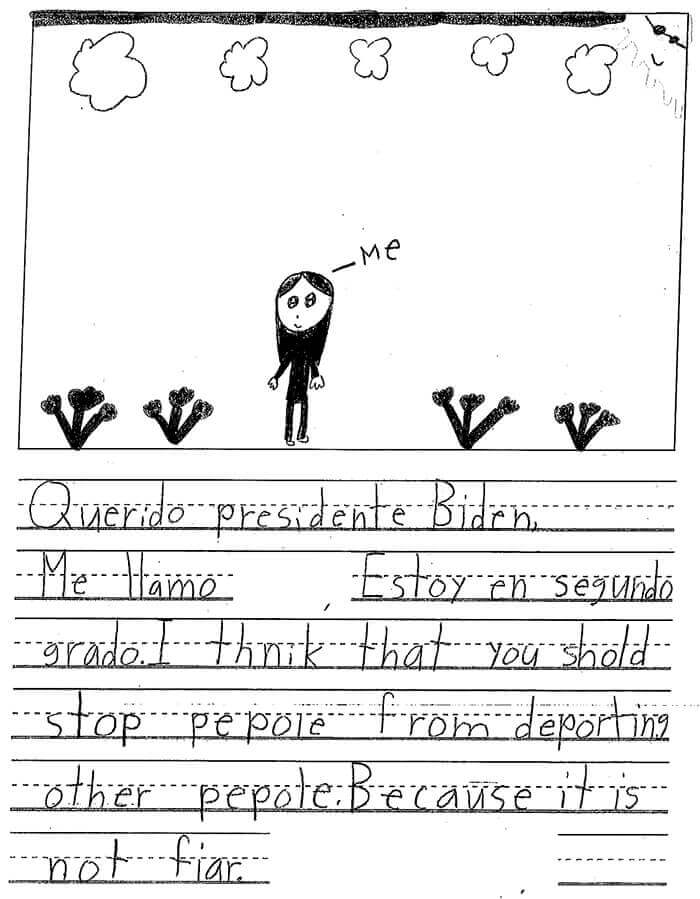 Me
Querido presidente Biden,
Me llamo , Estoy en segundo
grado. I thnik that you shold
stop pepole from deporting
other pepole. Because it is
not fiar.